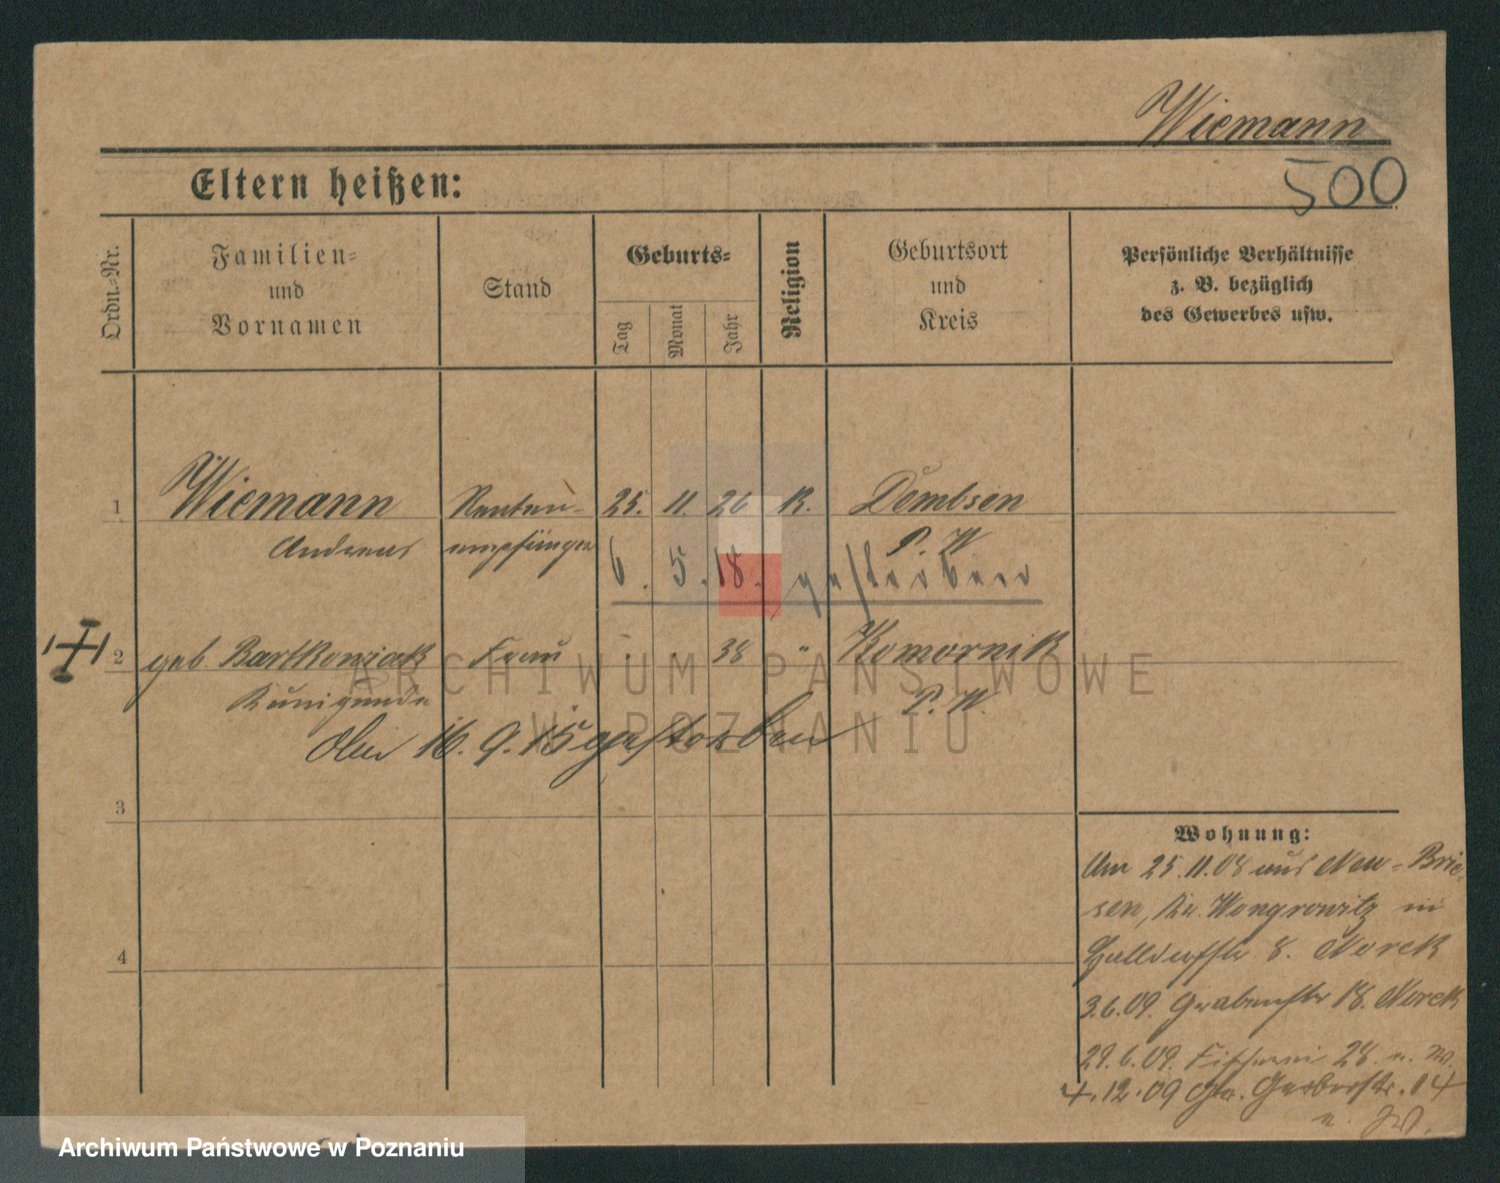 Wiemann
500
Eltern heißen:
Ordn.-Nr.
Familien-
und
Vornamen
Stand
Geburts-
Tag
Monat
Jahr
Religion
Geburtsort
und
Kreis
Persönliche Verhältnisse
z. B. bezüglich
des Gewerbes usw.
1 Wiemann Renten- 25. 11. 26 K. Dembsen
Andreas empfänger P. W
6. 5. 18. gestorben
2 geb Bartkowiak Frau 38 " Komornik
Kunigunde P. W.
Den 16. 9. 15 gestorben
3
4
Wohnung:
Am 25.11.08 aus Neu-Brie-
sen, Kr. Wongrowitz in
8. Norek
3.6.09. Grabenstr 18. Norek
29.6.09. Fischerei 28
4.12.09 Gr. Gerberstr. 14
ARCHIWUM PAŃSTWOWE
W POZNANIU
Archiwum Państwowe w Poznaniu